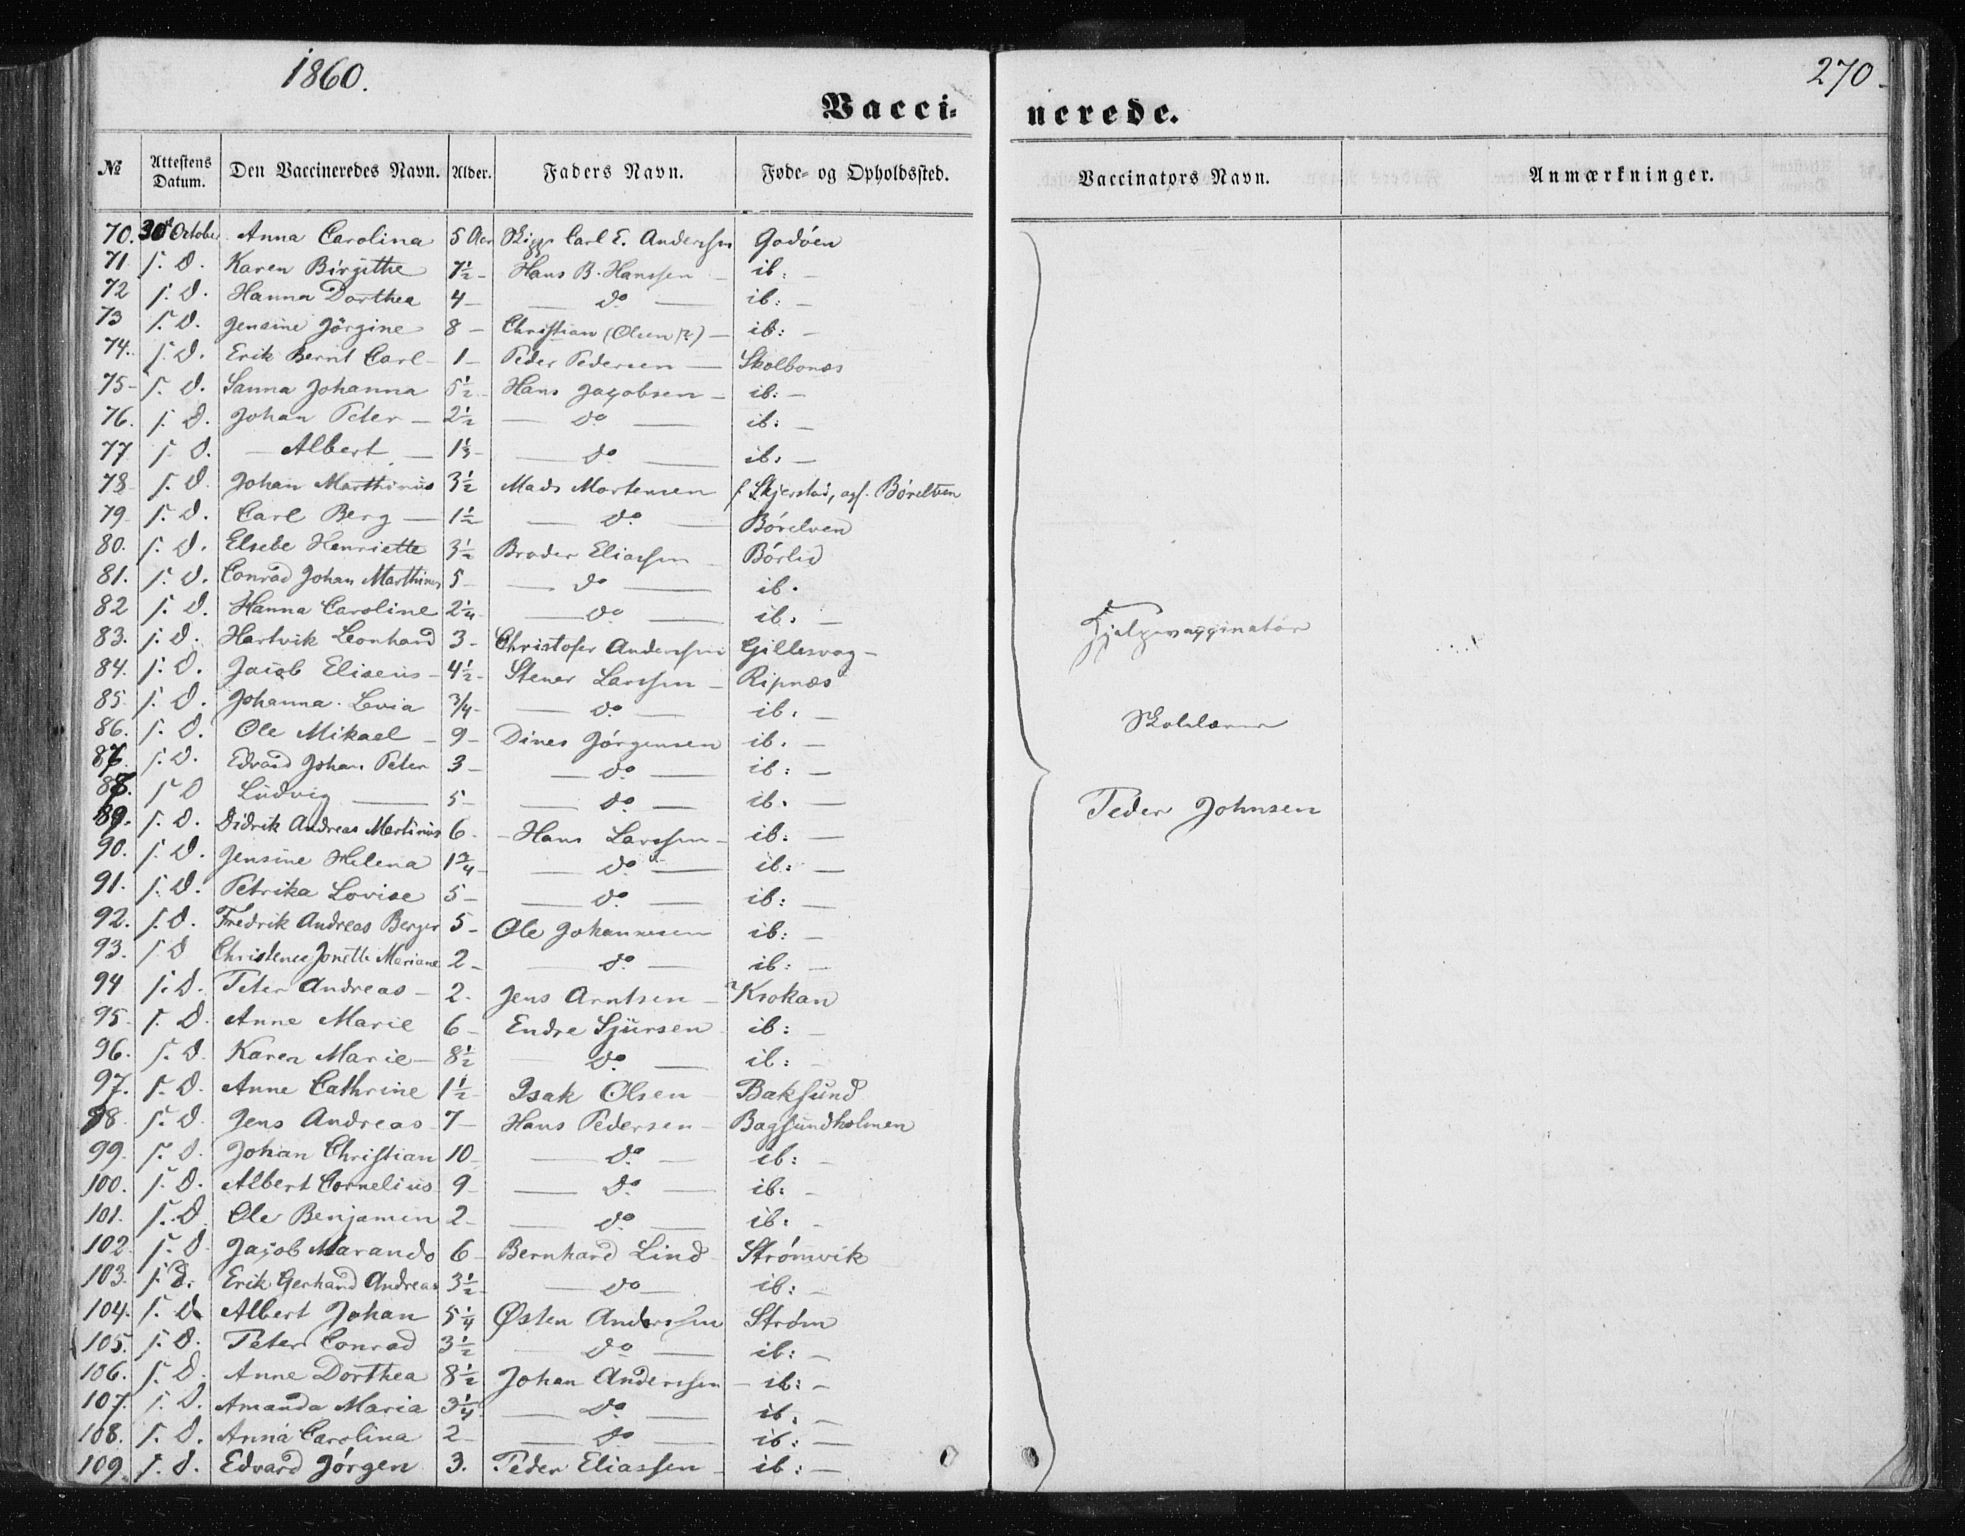 1860.
270.
Vacci-
nerede.
№ Attestens Datum. Den Vaccineredes Navn. Alder. Faders Navn. Føde- og Opholdssted. Vaccinators Navn. Anmærkninger.
70. 30 October Anna Carolina 5 Aar Carl E. Anderssen Godöen
71. s. D. Karen Birgithe 7½ - Hans B. Hanssen - ib: -
72 s. D. Hanna Dorthea 4 - do - ib: -
73 s. D. Jensine Jörgine 8 - Christian (Olsen?) - ib: -
74. s. D. Erik Bernt Carl - 1 - Peder Pedersen - Skolbonæs
75 - s. D. Sanna Johanna 5½ - Hans Jacobsen - ib: -
76. s. D. Johan Peter - 2½ - do - ib: -
77 s. D. - Albert - 1⅓ - do - ib: -
78 s. D. Johan Marthinus 3½ Mads Mortensen f. Skjerstad, opf. Börelven
79 s. D. Carl Berg - 1½ - do - Börelven
80. s. D. Elsebe Henriette 3½ Broder Eliassen - Börlid
81. s. D. Conrad Johan Marthinus 5 - do - ib.
82 s. D. Hanna Caroline 2¼ - do - ib. -
83. s. D. Hartvik Leonhard 3 - Christofer Anderssen Gillesvag -
84. s. D. Jacob Eliseus - 4½ - Stener Larssen - Ripnæs
85. s. D. Johanna Levia 3/4 - do - ib. -
86. s. D. Ole Mikael - 9 - Dines Jörgensen ib. -
87. s. D. Edvard Johan Peter 3 - do - ib: -
88. s D Ludvig - 5 - do - ib. -
89. s. D. Didrik Andreas Martinus 6 - Hans Larssen - ib: -
90. s. D. Jensine Helena 1¾ - do - ib: -
91. s. D. Petrika Lovise 5 - do - ib: -
92. s. D. Fredrik Andreas Berger 5 - Ole Johannesen ib: -
93. s D Christense Jonette Mariane 2 - do - ib: -
94 s. D. Peter Andreas - 2. Jens Arntsen - Krokan
95. s. D. Anne Marie 6 - Endre Sjursen ib: -
96. s. D. Karen Marie - 8½ do - ib: -
97. s. D. Anne Cathrine 1½ - Isak Olsen - Baksund
98 s. D. Jens Andreas 7 - Hans Pedersen - Bagsundholmen
99. s. D. Johan Christian 10 - do - ib: -
100. s. D. Albert Cornelius 9 - do - ib: -
101. s. D Ole Benjamin 2 - do - ib: -
102. s. D Jacob Marands 6 - Bernhard Lind - Strömvik
103. s. D. Erik Gerhard Andreas 3½ - do - ib: -
104. s. D Albert Johan 5¼ Østen Anderssen Ström
105. s. D. Peter Conrad 3½ - do - ib: -
106. s. D. Anne Dorthea 8½ Johan Anderssen - ib: -
107. s. D. Amanda Maria 3¼ - do - ib. -
108. s. D. Anna Carolina 2 - do - ib: -
109. s. d. Edvard Jörgen 3. Peder Eliassen - ib: -
Hjælpevaccinatör
Skolelærer
Peder Johnsen